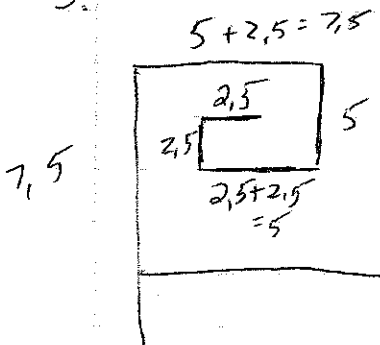 5 + 2,5 = 7,5
2,5
5
2,5
7,5
2,5+2,5
=5